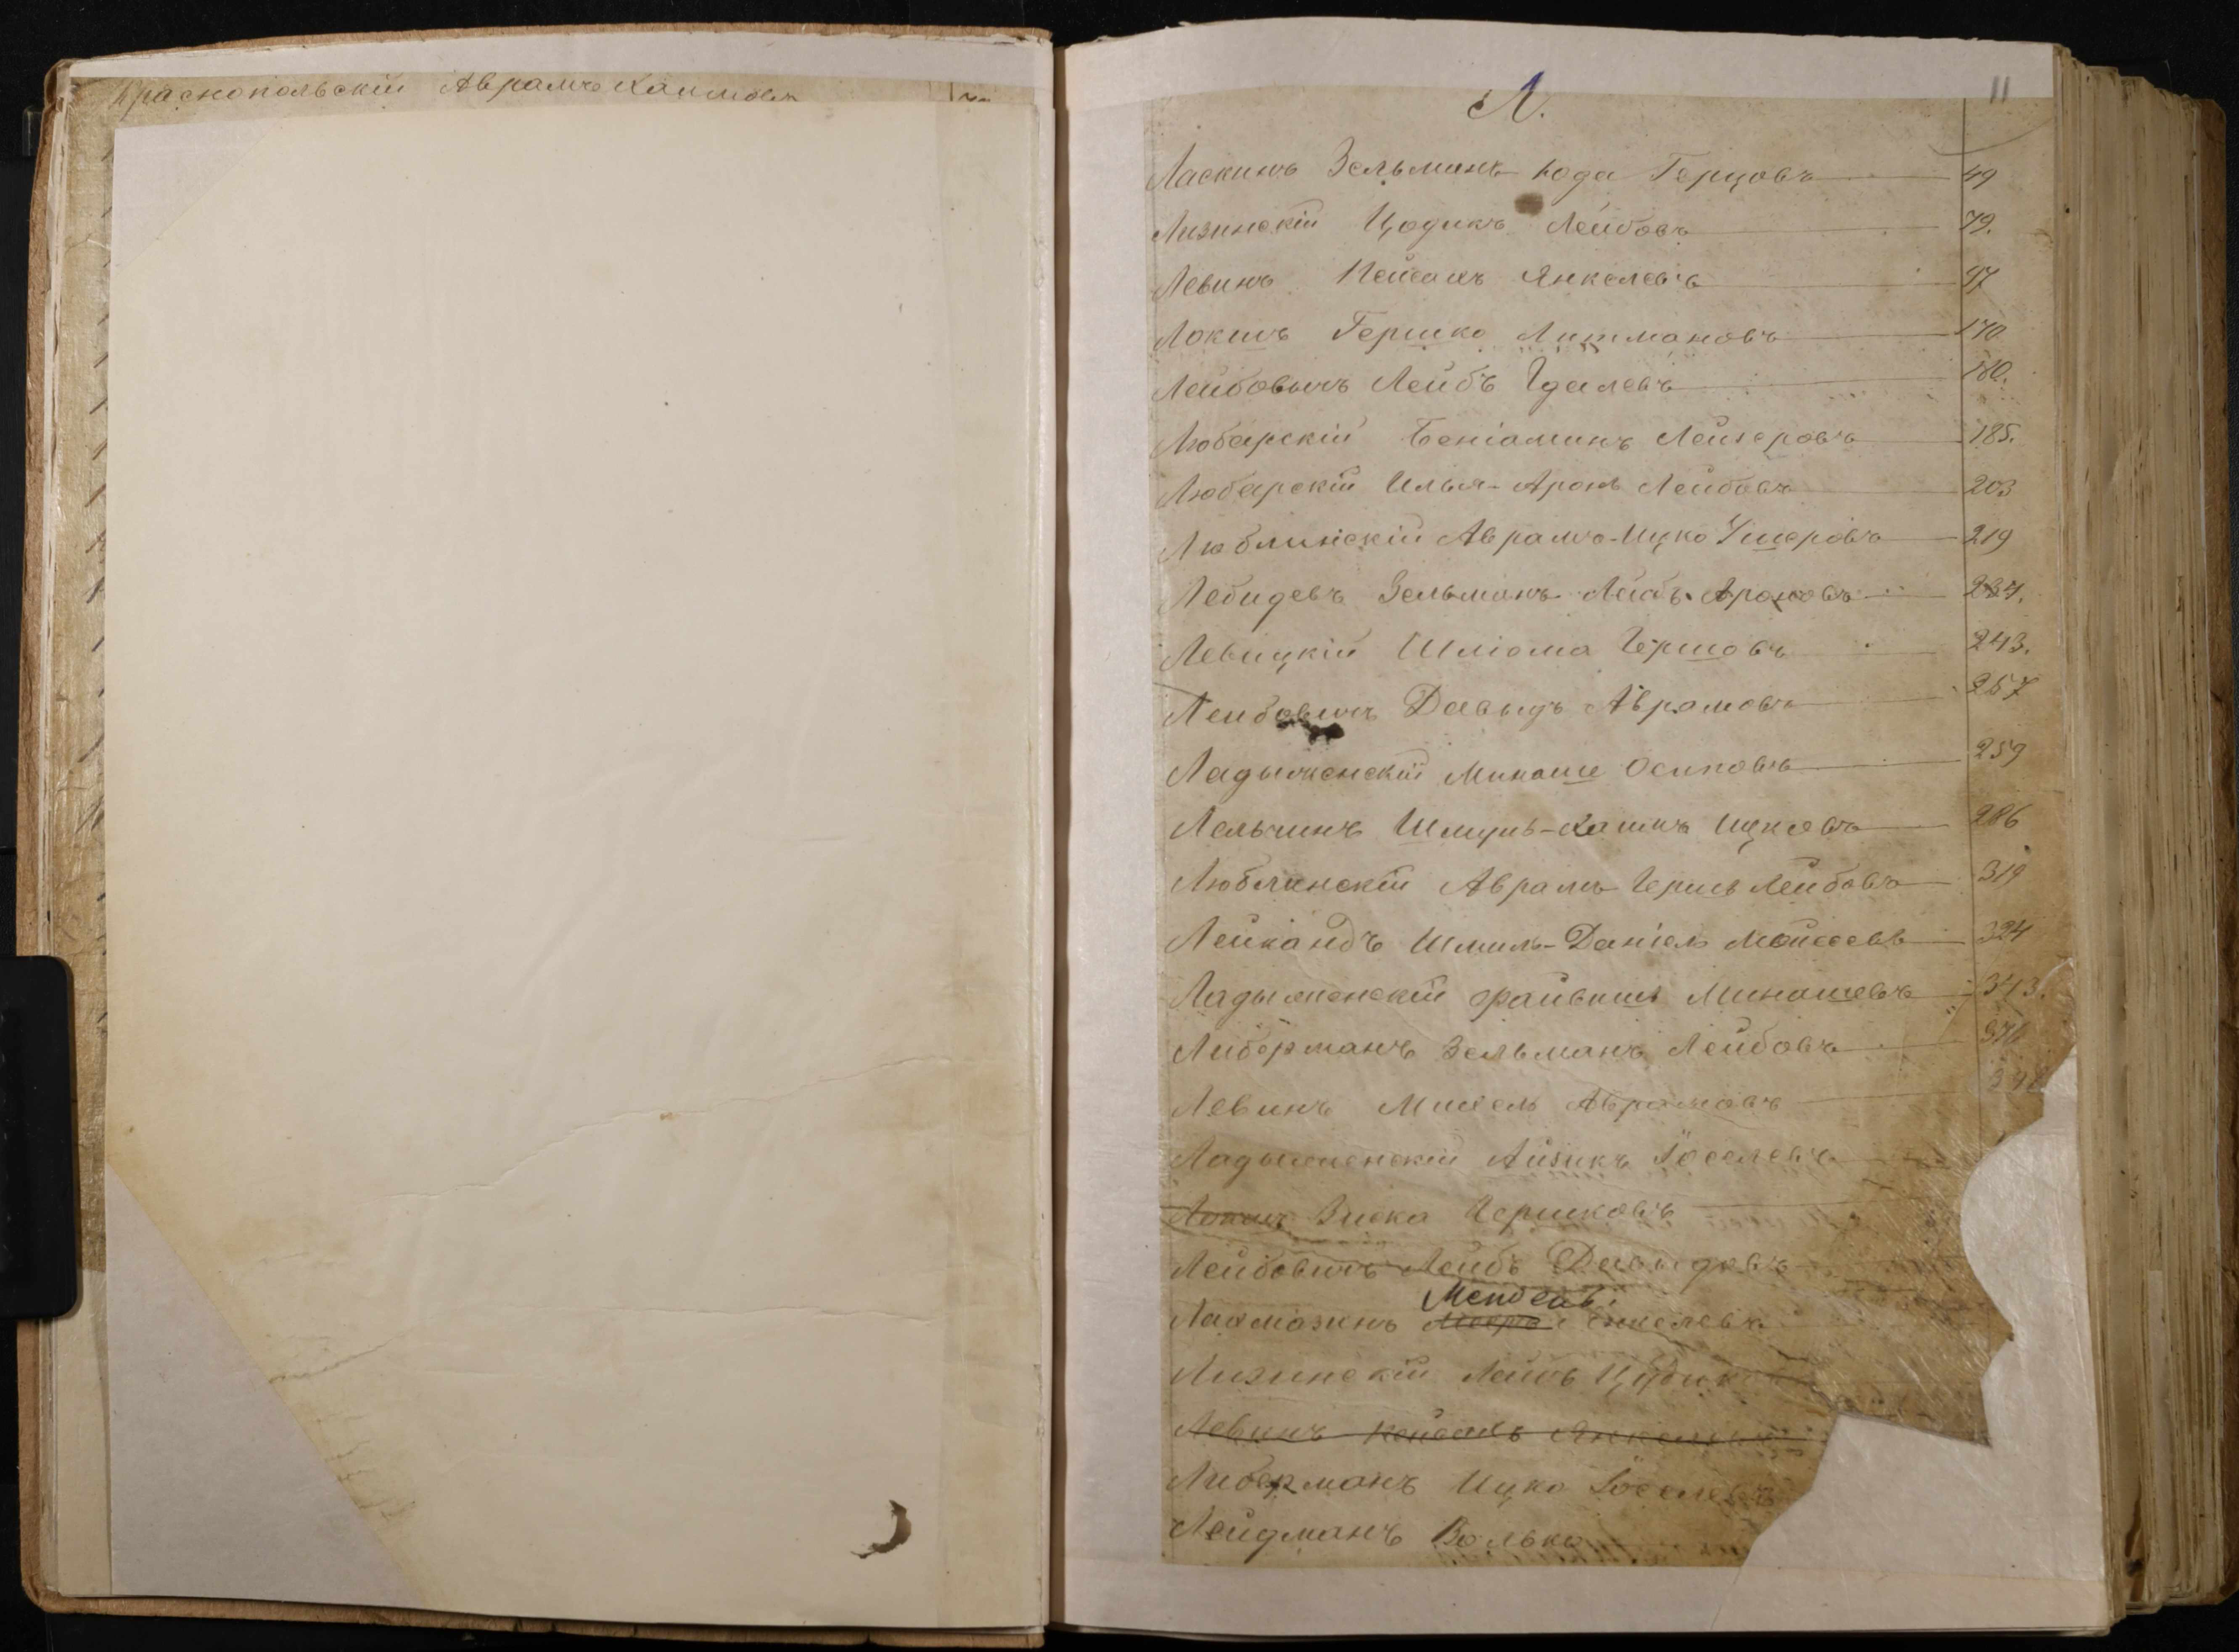 Краснопольскій Аврамъ Хаимовъ
11
Л.
Ласкинъ Зельманъ Года Герцовъ 49
Лизинскій Цодикъ Лейбовъ 79.
Левинъ Пейсахъ Янкелевъ 97
Локшъ Гершко Литмановъ 170
Лейбовичъ Лейбъ Гдалевъ 180.
Любарскій Беніаминъ Лейзеровъ 185.
Любарскій Илья-Аронъ Лейбовъ 203
Люблинскій Аврамъ-Ицко Ушеровъ 219
Лебидевъ Зельманъ-Лейбъ Ароновъ 234.
Левицкій Шліома Гершовъ 243.
Лейбовичъ Давыдъ Аврамовъ 257
Ладыженскій Минаше Осиповъ 259
Лельчинъ Шмуль-Хаимъ Ицковъ 286
Люблинскій Аврамъ Гершъ Лейбовъ 319
Лейкандъ Шмиль-Даніелъ Мойсеевъ 324
Ладыженскій Файвишъ Минашевъ 343.
Либерманъ Зельманъ Лейбовъ 370
Левинъ Михель Аврамовъ
Ладыженскій Айзикъ Іоселевъ
Локшъ Зиска Гершковъ
Лейбовичъ Лейбъ Давыдовъ
Мендель
Лахмозинъ Мееръ Янкелевъ
Лизинскій Лейбъ Цудиковъ
Левинъ Пейсахъ Янкелевъ
Либерманъ Ицко Іоселевъ
Лейдманъ Волько